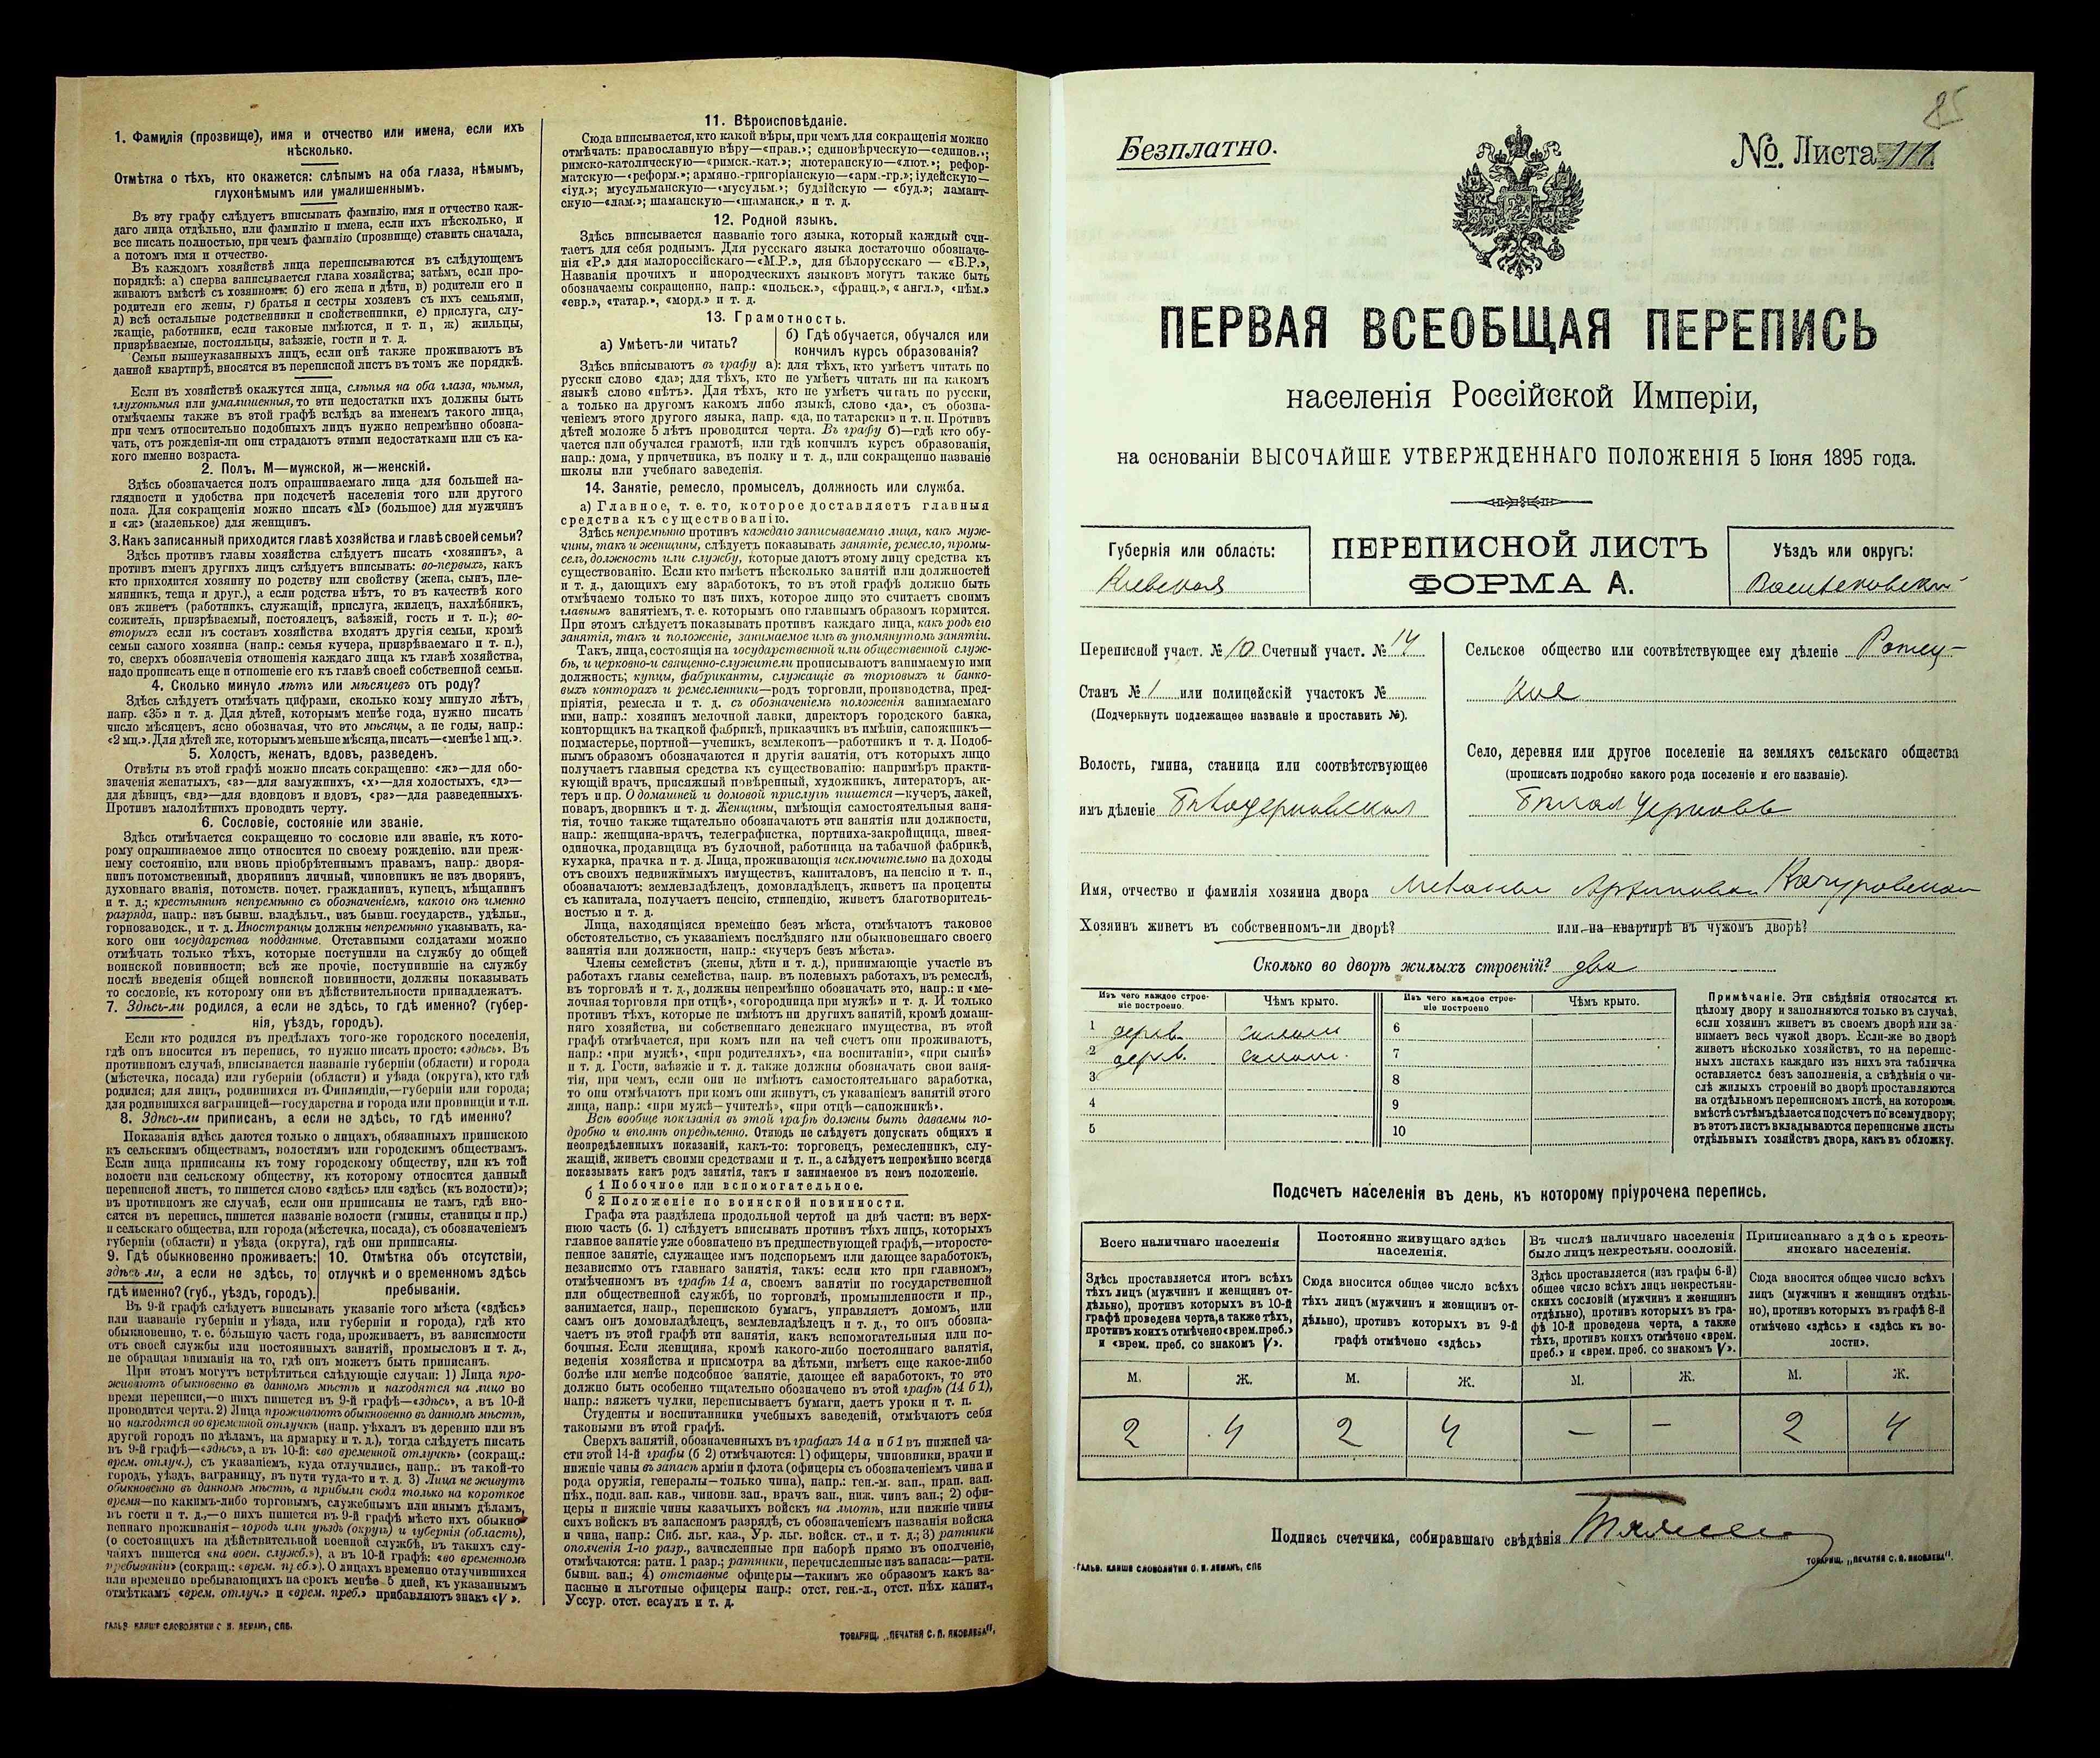 1. Фамилія (прозвище), имя и отчество или имена, если ихъ
нѣсколько.
Отмѣтка о тѣхъ, кто окажется: слѣпымъ на оба глаза, нѣмымъ,
глухонѣмымъ или умалишеннымъ.
Въ эту графу слѣдуетъ вписывать фамилію, имя и отчество каж-
даго лица отдѣльно, или фамилію и имена, если ихъ нѣсколько, и
все писать полностью, при чемъ фамилію (прозвище) ставить сначала,
а потомъ имя и отчество.
Въ каждомъ хозяйствѣ лица переписываются въ слѣдующемъ
порядкѣ: а) сперва записывается глава хозяйства; затѣмъ, если про-
живаютъ вмѣстѣ съ хозяиномъ: б) его жена и дѣти, в) родители его и
родители его жены, г) братья и сестры хозяевъ съ ихъ семьями,
д) всѣ остальные родственники и свойственники, е) прислуга, слу-
жащіе, работники, если таковые имѣются, и т. п., ж) жильцы,
призрѣваемые, постояльцы, заѣзжіе, гости и т. д.
Семьи вышеуказанныхъ лицъ, если онѣ также проживаютъ въ
данной квартирѣ, вносятся въ переписной листъ въ томъ же порядкѣ.
Если въ хозяйствѣ окажутся лица, слѣпыя на оба глаза, нѣмыя,
глухонѣмыя или умалишенныя, то эти недостатки ихъ должны быть
отмѣчаемы также въ этой графѣ вслѣдъ за именемъ такого лица,
при чемъ относительно подобныхъ лицъ нужно непремѣнно обозна-
чать, отъ рожденія-ли они страдаютъ этими недостатками или съ ка-
кого именно возраста.
2. Полъ. М—мужской, ж—женскій.
Здѣсь обозначается полъ опрашиваемаго лица для большей на-
глядности и удобства при подсчетѣ населенія того или другого
пола. Для сокращенія можно писать «М» (большое) для мужчинъ
и «ж» (маленькое) для женщинъ.
3. Какъ записанный приходится главѣ хозяйства и главѣ своей семьи?
Здѣсь противъ главы хозяйства слѣдуетъ писать «хозяинъ», а
противъ именъ другихъ лицъ слѣдуетъ вписывать: во-первыхъ, какъ
кто приходится хозяину по родству или свойству (жена, сынъ, пле-
мянникъ, теща и друг.), а если родства нѣтъ, то въ качествѣ кого
онъ живетъ (работникъ, служащій, прислуга, жилецъ, нахлѣбникъ,
сожитель, призрѣваемый, постоялецъ, заѣзжій, гость и т. п.); во-
вторыхъ если въ составъ хозяйства входятъ другія семьи, кромѣ
семьи самого хозяина (напр.: семья кучера, призрѣваемаго и т. п.),
то, сверхъ обозначенія отношенія каждаго лица къ главѣ хозяйства,
надо прописать еще и отношеніе его къ главѣ своей собственной семьи.
4. Сколько минуло лѣтъ или мѣсяцевъ отъ роду?
Здѣсь слѣдуетъ отмѣчать цифрами, сколько кому минуло лѣтъ,
напр. «35» и т. д. Для дѣтей, которымъ менѣе года, нужно писать
число мѣсяцевъ, ясно обозначая, что это мѣсяцы, а не годы, напр.:
«2 мц.». Для дѣтей же, которымъ меньше мѣсяца, писать—«менѣе 1 мц.».
5. Холостъ, женатъ, вдовъ, разведенъ.
Отвѣты въ этой графѣ можно писать сокращенно: «ж»—для обо-
значенія женатыхъ, «з»—для замужнихъ, «х»—для холостыхъ, «д»—
для дѣвицъ, «вд»—для вдовцовъ и вдовъ, «рз»—для разведенныхъ.
Противъ малолѣтнихъ проводить черту.
6. Сословіе, состояніе или званіе.
Здѣсь отмѣчается сокращенно то сословіе или званіе, къ кото-
рому опрашиваемое лицо относится по своему рожденію, или преж-
нему состоянію, или вновь пріобрѣтеннымъ правамъ, напр.: дворя-
нинъ потомственный, дворянинъ личный, чиновникъ не изъ дворянъ,
духовнаго званія, потомств. почет. гражданинъ, купецъ, мѣщанинъ
и т. д.; крестьянинъ непремѣнно съ обозначеніемъ, какого онъ именно
разряда, напр.: изъ бывш. владѣльч., изъ бывш. государств., удѣльн.,
горнозаводск., и т. д. Иностранцы должны непремѣнно указывать, ка-
кого они государства подданные. Отставными солдатами можно
отмѣчать только тѣхъ, которые поступили на службу до общей
воинской повинности; всѣ же прочіе, поступившіе на службу
послѣ введенія общей воинской повинности, должны показывать
то сословіе, къ которому они въ дѣйствительности принадлежатъ.
7. Здѣсь-ли родился, а если не здѣсь, то гдѣ именно? (губер-
нія, уѣздъ, городъ).
Если кто родился въ предѣлахъ того-же городского поселенія,
гдѣ онъ вносится въ перепись, то нужно писать просто: «здѣсь». Въ
противномъ случаѣ, вписывается названіе губерніи (области) и города
(мѣстечка, посада) или губерніи (области) и уѣзда (округа), кто гдѣ
родился; для лицъ, родившихся въ Финляндіи,—губерніи или города;
для родившихся заграницей—государства и города или провинціи и т.п.
8. Здѣсь-ли приписанъ, а если не здѣсь, то гдѣ именно?
Показанія здѣсь даются только о лицахъ, обязанныхъ припискою
къ сельскимъ обществамъ, волостямъ или городскимъ обществамъ.
Если лица приписаны къ тому городскому обществу, или къ той
волости или сельскому обществу, къ которому относится данный
переписной листъ, то пишется слово «здѣсь» или «здѣсь (къ волости)»;
въ противномъ же случаѣ, если они приписаны не тамъ, гдѣ вно-
сятся въ перепись, пишется названіе волости (гмины, станицы и пр.)
и сельскаго общества, или города (мѣстечка, посада), съ обозначеніемъ
губерніи (области) и уѣзда (округа), гдѣ они приписаны.
9. Гдѣ обыкновенно проживаетъ:
здѣсь ли, а если не здѣсь, то
гдѣ именно? (губ., уѣздъ, городъ).
10. Отмѣтка объ отсутствіи,
отлучкѣ и о временномъ здѣсь
пребываніи.
Въ 9-й графѣ слѣдуетъ вписывать указаніе того мѣста («здѣсь»
или названіе губерніи и уѣзда, или губерніи и города), гдѣ кто
обыкновенно, т. е. большую часть года, проживаетъ, въ зависимости
отъ своей службы или постоянныхъ занятій, промысловъ и т. д.,
не обращая вниманія на то, гдѣ онъ можетъ быть приписанъ.
При этомъ могутъ встрѣтиться слѣдующіе случаи: 1) Лица про-
живаютъ обыкновенно въ данномъ мѣстѣ и находятся на лицо во
время переписи,—о нихъ пишется въ 9-й графѣ—«здѣсь», а въ 10-й
проводится черта. 2) Лица проживаютъ обыкновенно въ данномъ мѣстѣ,
но находятся во временной отлучкѣ (напр. уѣхалъ въ деревню или въ
другой городъ по дѣламъ, на ярмарку и т. д.), тогда слѣдуетъ писать
въ 9-й графѣ—«здѣсь», а въ 10-й: «во временной отлучкѣ» (сокращ.:
врем. отлуч.), съ указаніемъ, куда отлучились, напр.: въ такой-то
городъ, уѣздъ, заграницу, въ пути туда-то и т. д. 3) Лица не живутъ
обыкновенно въ данномъ мѣстѣ, а прибыли сюда только на короткое
время—по какимъ-либо торговымъ, служебнымъ или инымъ дѣламъ,
въ гости и т. д.,—о нихъ пишется въ 9-й графѣ мѣсто ихъ обыкно-
веннаго проживанія—городъ или уѣздъ (округъ) и губернія (область),
(о состоящихъ на дѣйствительной военной службѣ, въ такихъ слу-
чаяхъ пишется «на воен. служб.»), а въ 10-й графѣ: «во временномъ
пребываніи» (сокращ.: «врем. преб.»). О лицахъ временно отлучившихся
или временно пребывающихъ на срокъ менѣе 5 дней, къ указаннымъ
отмѣткамъ «врем. отлуч.» и «врем. преб.» прибавляютъ знакъ «V».
ГАЛЬВ. КЛИШЕ СЛОВОЛИТНИ О. И. ЛЕМАНЪ, СПБ.
11. Вѣроисповѣданіе.
Сюда вписывается, кто какой вѣры, при чемъ для сокращенія можно
отмѣчать: православную вѣру—«прав.»; единовѣрческую—«единов.»;
римско-католическую—«римск.-кат.»; лютеранскую—«лют.»; рефор-
матскую—«реформ.»; армяно.-григоріанскую—«арм.-гр.»; іудейскую—
«іуд.»; мусульманскую—«мусульм.»; буддійскую — «буд.»; ламаит-
скую—«лам.»; шаманскую—«шаманск.» и т. д.
12. Родной языкъ.
Здѣсь вписывается названіе того языка, который каждый счи-
таетъ для себя роднымъ. Для русскаго языка достаточно обозначе-
нія «Р.» для малороссійскаго—«М.Р.», для бѣлорусскаго — «Б.Р.»,
Названія прочихъ и инородческихъ языковъ могутъ также быть
обозначаемы сокращенно, напр.: «польск.», «франц.», «англ.», «нѣм.»
«евр.», «татар.», «морд.» и т. д.
13. Грамотность.
а) Умѣетъ-ли читать?
б) Гдѣ обучается, обучался или
кончилъ курсъ образованія?
Здѣсь вписываютъ въ графу а): для тѣхъ, кто умѣетъ читать по
русски слово «да»; для тѣхъ, кто не умѣетъ читать ни на какомъ
языкѣ слово «нѣтъ». Для тѣхъ, кто не умѣетъ читать по русски,
а только на другомъ какомъ либо языкѣ, слово «да», съ обозна-
ченіемъ этого другого языка, напр. «да, по татарски» и т. п. Противъ
дѣтей моложе 5 лѣтъ проводится черта. Въ графу б)—гдѣ кто обу-
чается или обучался грамотѣ, или гдѣ кончилъ курсъ образованія,
напр.: дома, у причетника, въ полку и т. д., или сокращенно названіе
школы или учебнаго заведенія.
14. Занятіе, ремесло, промыселъ, должность или служба.
а) Главное, т. е. то, которое доставляетъ главныя
средства къ существованію.
Здѣсь непремѣнно противъ каждаго записываемаго лица, какъ муж-
чины, такъ и женщины, слѣдуетъ показывать занятіе, ремесло, промы-
селъ, должность или службу, которые даютъ этому лицу средства къ
существованію. Если кто имѣетъ нѣсколько занятій или должностей
и т. д., дающихъ ему заработокъ, то въ этой графѣ должно быть
отмѣчаемо только то изъ нихъ, которое лицо это считаетъ своимъ
главнымъ занятіемъ, т. е. которымъ оно главнымъ образомъ кормится.
При этомъ слѣдуетъ показывать противъ каждаго лица, какъ родъ его
занятія, такъ и положеніе, занимаемое имъ въ упомянутомъ занятіи.
Такъ, лица, состоящія на государственной или общественной служ-
бѣ, и церковно-и священно-служители прописываютъ занимаемую ими
должность; купцы, фабриканты, служащіе въ торговыхъ и банко-
выхъ конторахъ и ремесленники—родъ торговли, производства, пред-
пріятія, ремесла и т. д. съ обозначеніемъ положенія занимаемаго
ими, напр.: хозяинъ мелочной лавки, директоръ городского банка,
конторщикъ на ткацкой фабрикѣ, приказчикъ въ имѣніи, сапожникъ—
подмастерье, портной—ученикъ, землекопъ—работникъ и т. д. Подоб-
нымъ образомъ обозначаются и другія занятія, отъ которыхъ лицо
получаетъ главныя средства къ существованію: напримѣръ практи-
кующій врачъ, присяжный повѣренный, художникъ, литераторъ, ак-
теръ и пр. О домашней и домовой прислугѣ пишется—кучеръ, лакей,
поваръ, дворникъ и т. д. Женщины, имѣющія самостоятельныя заня-
тія, точно также тщательно обозначаютъ эти занятія или должности,
напр.: женщина-врачъ, телеграфистка, портниха-закройщица, швея-
одиночка, продавщица въ булочной, работница на табачной фабрикѣ,
кухарка, прачка и т. д. Лица, проживающія исключительно на доходы
отъ своихъ недвижимыхъ имуществъ, капиталовъ, на пенсію и т. п.,
обозначаютъ: землевладѣлецъ, домовладѣлецъ, живетъ на проценты
съ капитала, получаетъ пенсію, стипендію, живетъ благотворитель-
ностью и т. д.
Лица, находящіяся временно безъ мѣста, отмѣчаютъ таковое
обстоятельство, съ указаніемъ послѣдняго или обыкновеннаго своего
занятія или должности, напр.: «кучеръ безъ мѣста».
Члены семействъ (жены, дѣти и т. д.), принимающіе участіе въ
работахъ главы семейства, напр. въ полевыхъ работахъ, въ ремеслѣ,
въ торговлѣ и т. д., должны непремѣнно обозначать это, напр.: и «ме-
лочная торговля при отцѣ», «огородница при мужѣ» и т. д. И только
противъ тѣхъ, которые не имѣютъ ни другихъ занятій, кромѣ домаш-
няго хозяйства, ни собственнаго денежнаго имущества, въ этой
графѣ отмѣчается, при комъ или на чей счетъ они проживаютъ,
напр.: «при мужѣ», «при родителяхъ», «на воспитаніи», «при сынѣ»
и т. д. Гости, заѣзжіе и т. д. также должны обозначать свои заня-
тія, при чемъ, если они не имѣютъ самостоятельнаго заработка,
то они отмѣчаютъ при комъ они живутъ, съ указаніемъ занятій этого
лица, напр.: «при мужѣ—учителѣ», «при отцѣ—сапожникѣ».
Всѣ вообще показанія въ этой графѣ должны быть даваемы по-
дробно и вполнѣ опредѣленно. Отнюдь не слѣдуетъ допускать общихъ и
неопредѣленныхъ показаній, какъ-то: торговецъ, ремесленникъ, слу-
жащій, живетъ своими средствами и т. п., а слѣдуетъ непремѣнно всегда
показывать какъ родъ занятія, такъ и занимаемое въ немъ положеніе.
б 1 Побочное или вспомогательное.
2 Положеніе по воинской повинности.
Графа эта раздѣлена продольной чертой на двѣ части: въ верх-
нюю часть (б. 1) слѣдуетъ вписывать противъ тѣхъ лицъ, которыхъ
главное занятіе уже обозначено въ предшествующей графѣ,—второсте-
пенное занятіе, служащее имъ подспорьемъ или дающее заработокъ,
независимо отъ главнаго занятія, такъ: если кто при главномъ,
отмѣченномъ въ графѣ 14 а, своемъ занятіи по государственной
или общественной службѣ, по торговлѣ, промышленности и пр.,
занимается, напр., перепискою бумагъ, управляетъ домомъ, или
самъ онъ домовладѣлецъ, землевладѣлецъ и т. д., то онъ обозна-
чаетъ въ этой графѣ эти занятія, какъ вспомогательныя или по-
бочныя. Если женщина, кромѣ какого-либо постояннаго занятія,
веденія хозяйства и присмотра за дѣтьми, имѣетъ еще какое-либо
болѣе или менѣе подсобное занятіе, дающее ей заработокъ, то это
должно быть особенно тщательно обозначено въ этой графѣ (14 б 1),
напр.: вяжетъ чулки, переписываетъ бумаги, даетъ уроки и т. п.
Студенты и воспитанники учебныхъ заведеній, отмѣчаютъ себя
таковыми въ этой графѣ.
Сверхъ занятій, обозначенныхъ въ графахъ 14 а и б 1 въ нижней ча-
сти этой 14-й графы (б 2) отмѣчаются: 1) офицеры, чиновники, врачи и
нижніе чины въ запасѣ арміи и флота (офицеры съ обозначеніемъ чина и
рода оружія, генералы—только чина), напр.: ген.-м. зап., прап. зап.
пѣх., подп. зап. кав., чиновн. зап., врачъ зап., ниж. чинъ зап.; 2) офи-
церы и нижніе чины казачьихъ войскъ на льготѣ, или нижніе чины
сихъ войскъ въ запасномъ разрядѣ, съ обозначеніемъ названія войска
и чина, напр.: Сиб. льг. каз., Ур. льг. войск. ст., и т. д.; 3) ратники
ополченія 1-го разр., зачисленные при наборѣ прямо въ ополченіе,
отмѣчаются: ратн. 1 разр.; ратники, перечисленные изъ запаса:—ратн.
бывш. зап.; 4) отставные офицеры—такимъ же образомъ какъ за-
пасные и льготные офицеры напр.: отст. ген.-л., отст. пѣх. капит.,
Уссур. отст. есаулъ и т. д.
ТОВАРИЩ. „ПЕЧАТНЯ С. П. ЯКОВЛЕВА".
85
Безплатно.
№ Листа 111
ПЕРВАЯ ВСЕОБЩАЯ ПЕРЕПИСЬ
населенія Россійской Имперіи,
на основаніи ВЫСОЧАЙШЕ УТВЕРЖДЕННАГО ПОЛОЖЕНІЯ 5 Іюня 1895 года.
Губернія или область:
Кіевская
ПЕРЕПИСНОЙ ЛИСТЪ
ФОРМА А.
Уѣздъ или округъ:
Васильковскій
Переписной участ. № 10 Счетный участ. № 14
Станъ № 1 или полицейскій участокъ №
(Подчеркнуть подлежащее названіе и проставить №).
Волость, гмина, станица или соотвѣтствующее
имъ дѣленіе Бѣлоцерковская
Сельское общество или соотвѣтствующее ему дѣленіе
Село, деревня или другое поселеніе на земляхъ сельскаго общества
(прописать подробно какого рода поселеніе и его названіе).
Бѣлая Церковь
Имя, отчество и фамилія хозяина двора
Хозяинъ живетъ въ собственномъ-ли дворѣ? или на квартирѣ въ чужомъ дворѣ?
Сколько во дворѣ жилыхъ строеній? два
Изъ чего каждое строе-
ніе построено. Чѣмъ крыто. Изъ чего каждое строе-
ніе построено Чѣмъ крыто.
1 дерев. солом 6
2 дерев. солом. 7
3 8
4 9
5 10
Примѣчаніе. Эти свѣдѣнія относятся къ
цѣлому двору и заполняются только въ случаѣ,
если хозяинъ живетъ въ своемъ дворѣ или за-
нимаетъ весь чужой дворъ. Если-же во дворѣ
живетъ нѣсколько хозяйствъ, то на перепис-
ныхъ листахъ каждаго изъ нихъ эта табличка
оставляется безъ заполненія, а свѣдѣнія о чи-
слѣ жилыхъ строеній во дворѣ проставляются
на отдѣльномъ переписномъ листѣ, на которомъ
вмѣстѣ съ тѣмъ дѣлается подсчетъ по всему двору;
въ этотъ листъ вкладываются переписные листы
отдѣльныхъ хозяйствъ двора, какъ въ обложку.
Подсчетъ населенія въ день, къ которому пріурочена перепись.
Всего наличнаго населенія
Здѣсь проставляется итогъ всѣхъ
тѣхъ лицъ (мужчинъ и женщинъ от-
дѣльно), противъ которыхъ въ 10-й
графѣ проведена черта, а также тѣхъ,
противъ коихъ отмѣчено «врем. преб.»
и «врем. преб. со знакомъ V».
Постоянно живущаго здѣсь
населенія.
Сюда вносится общее число всѣхъ
тѣхъ лицъ (мужчинъ и женщинъ от-
дѣльно), противъ которыхъ въ 9-й
графѣ отмѣчено «здѣсь»
Въ числѣ наличнаго населенія
было лицъ некрестьян. сословій.
Здѣсь проставляется (изъ графы 6-й)
общее число всѣхъ лицъ некрестьян-
скихъ сословій (мужчинъ и женщинъ
отдѣльно), противъ которыхъ въ гра-
фѣ 10-й проведена черта, а также
тѣхъ, противъ коихъ отмѣчено «врем.
преб.» и «врем. преб. со знакомъ V».
Приписаннаго здѣсь кресть-
янскаго населенія.
Сюда вносится общее число всѣхъ
лицъ (мужчинъ и женщинъ отдѣль-
но), противъ которыхъ въ графѣ 8-й
отмѣчено «здѣсь» и «здѣсь къ во-
лости».
М. Ж. М. Ж. М. Ж. М. Ж.
2 4 2 4 — — 2 4
Подпись счетчика, собиравшаго свѣдѣнія
ГАЛЬВ. КЛИШЕ СЛОВОЛИТНИ О. И. ЛЕМАНЪ, СПБ
ТОВАРИЩ. „ПЕЧАТНЯ С. П. ЯКОВЛЕВА".